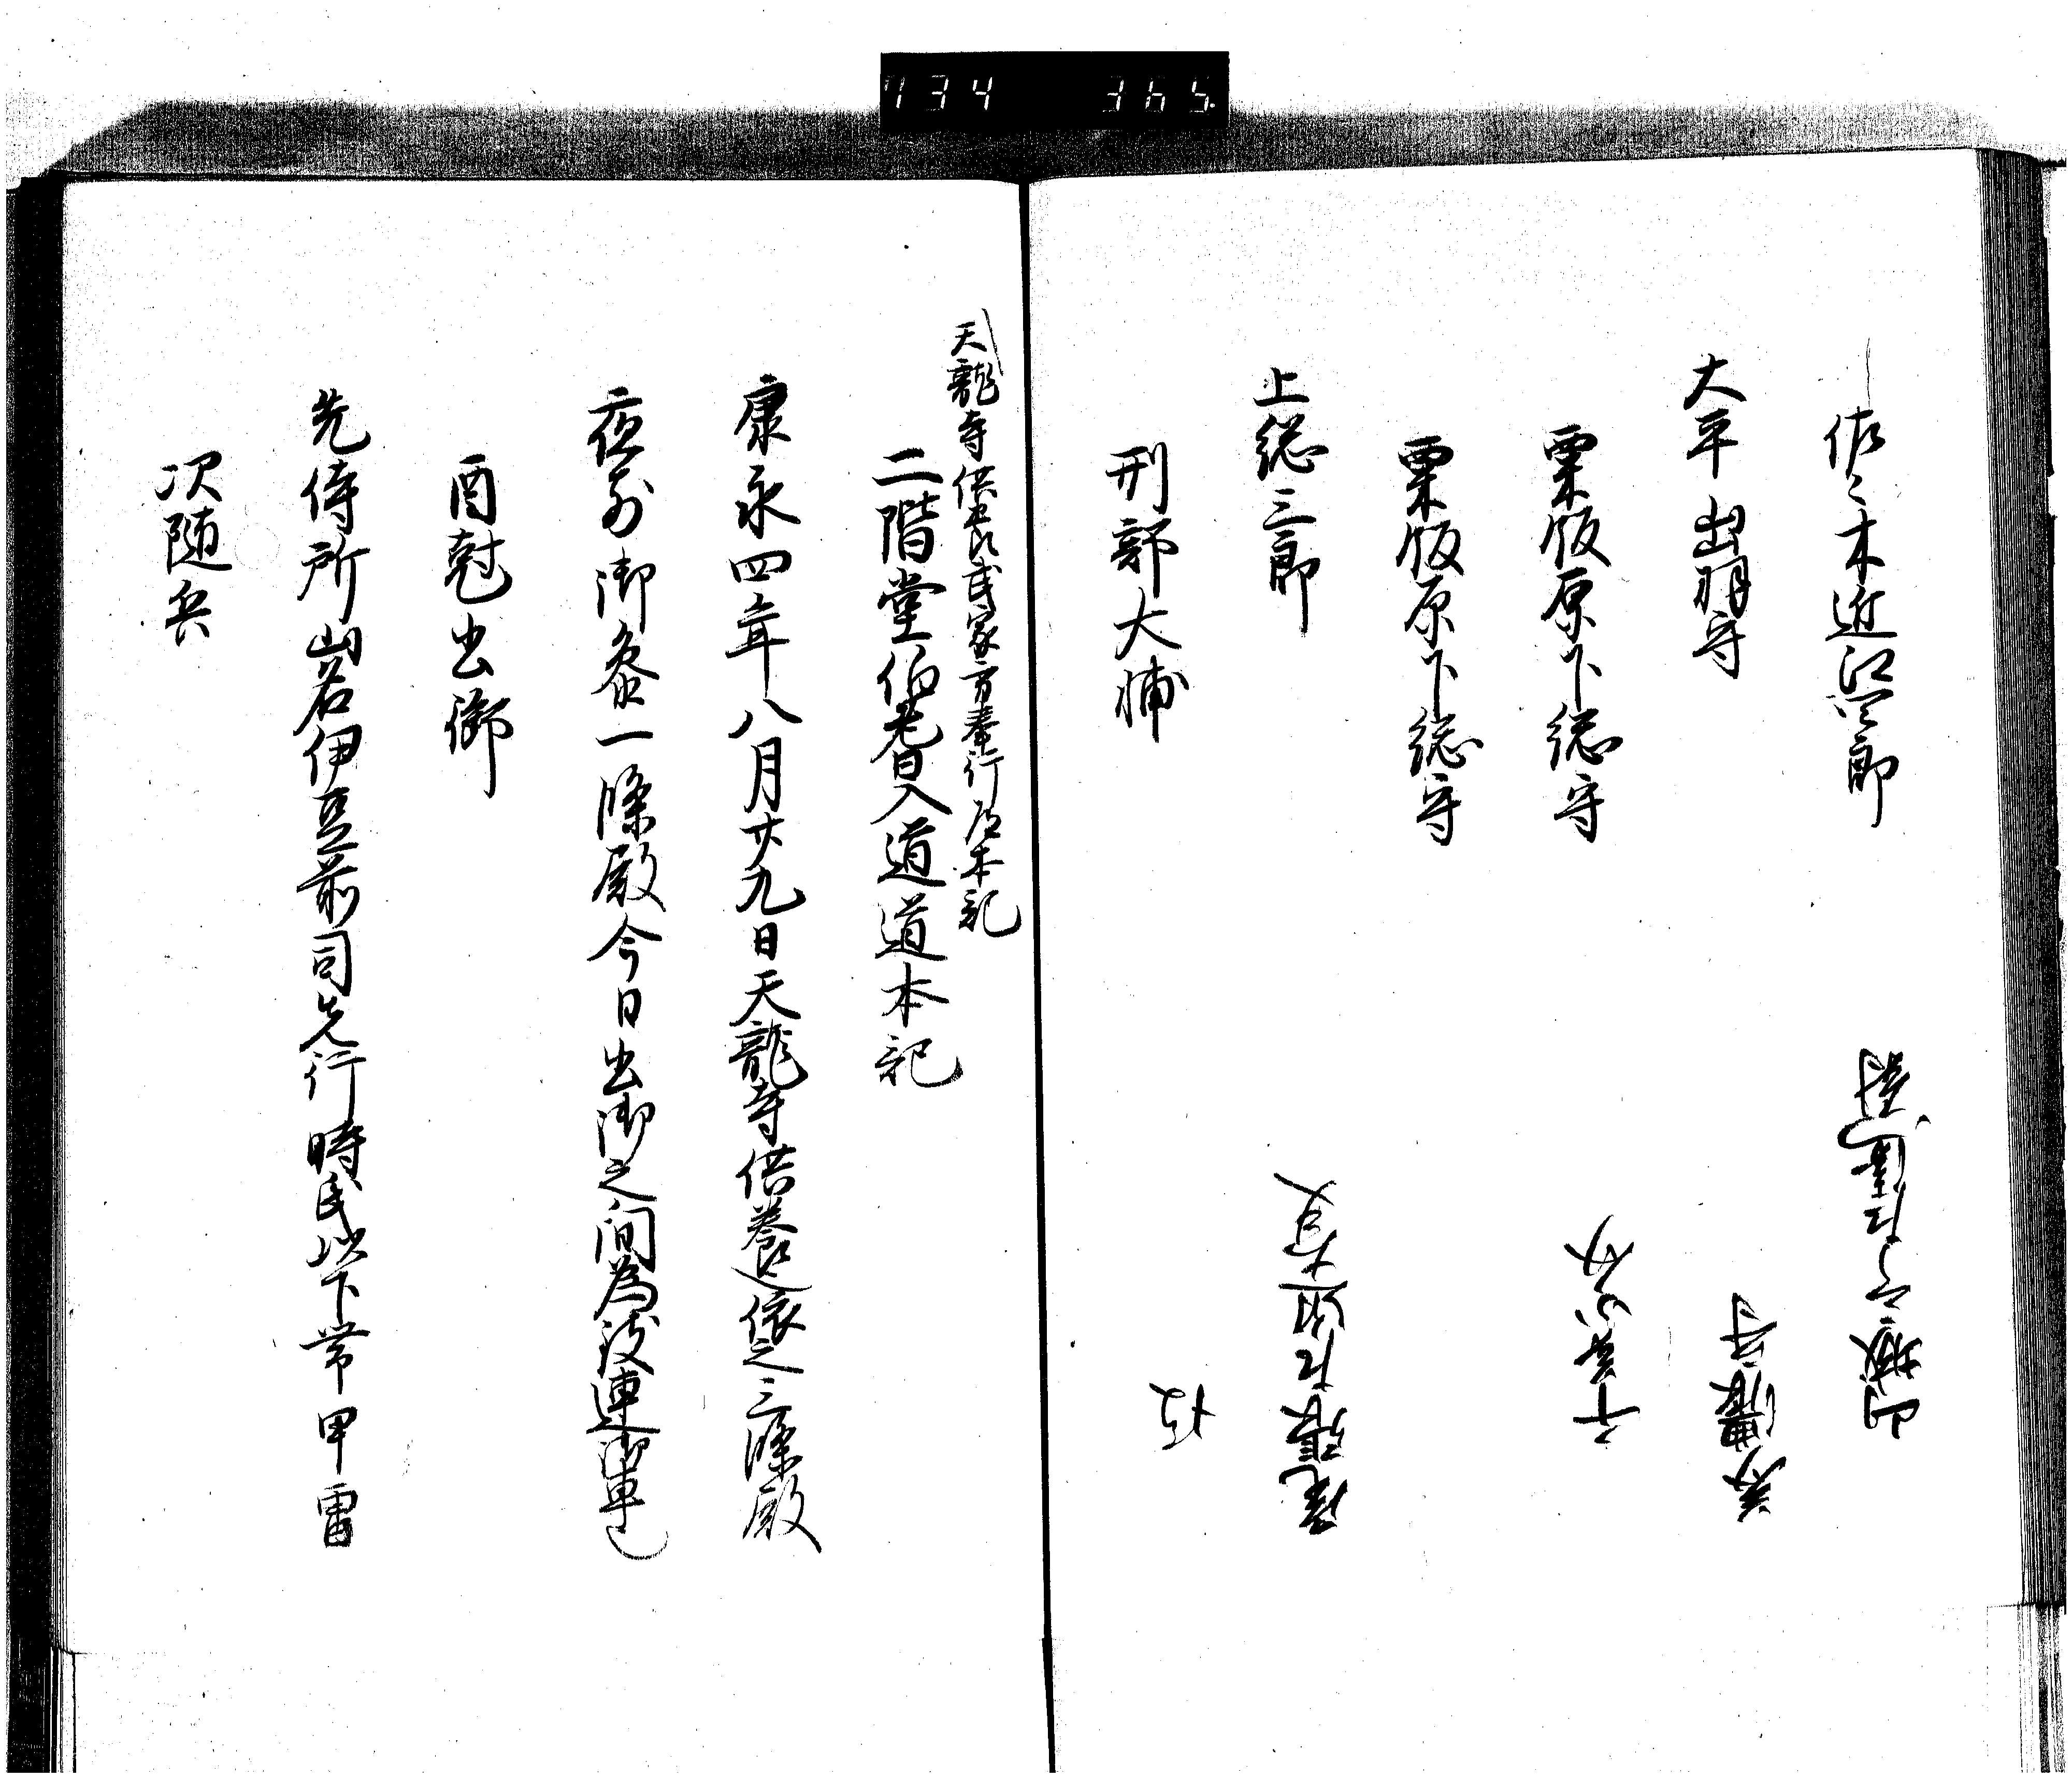 734 365
佐々木近江四郎
大平出羽守
粟飯原下総守
粟飯原下総守
上総三郎
刑部大輔
美濃守
千葉介
尾張左近大夫
天龍寺供養武家方奉行道本記
二階堂伯耆入道道本記
康永四年八月廿九日天龍寺供養還依之二條殿
夜前御参一條殿今日出御之間為被連御車也
酉剋出御
先侍所山名伊豆前司先行時氏以下帯甲冑
次随兵